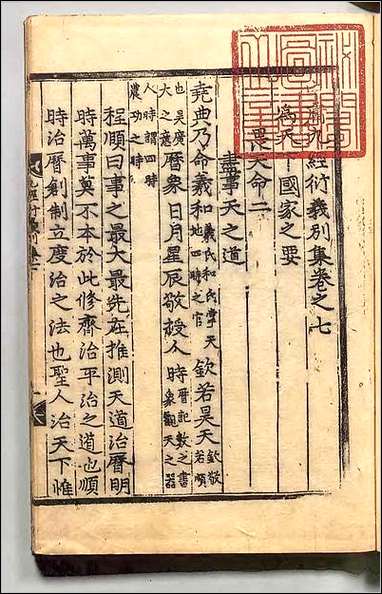 九經衍義別集卷之七
爲天下國家之要
畏天命二
盡事天之道
堯典乃命羲和羲氏和氏掌天地四時之官欽若昊天欽敬若順
也昊廣大之意曆象日月星辰敬授人時曆記數之書象觀天之器
人時謂四時農功之時
程頤曰事之最大最先在推測天道治曆明
時萬事莫不本於此修齊治平治之道也順
時治曆創制立度治之法也聖人治天下惟